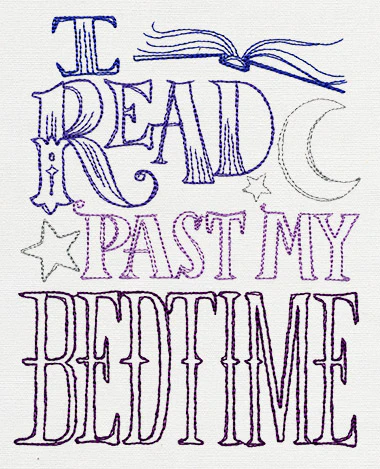 I
READ
PAST MY
BEDTIME